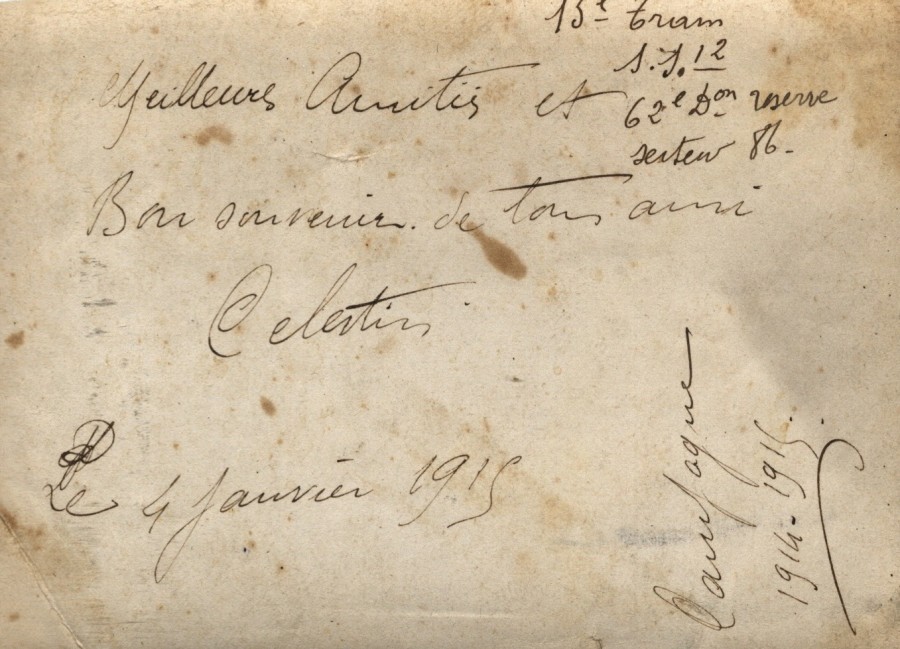 15e Train
S.S. 12
62e Don reserve
secteur 86.
Meilleurs Amitiés et
Bon souvenir de ton ami
Celestin
Le 4 Janvier 1915
1914-1915.